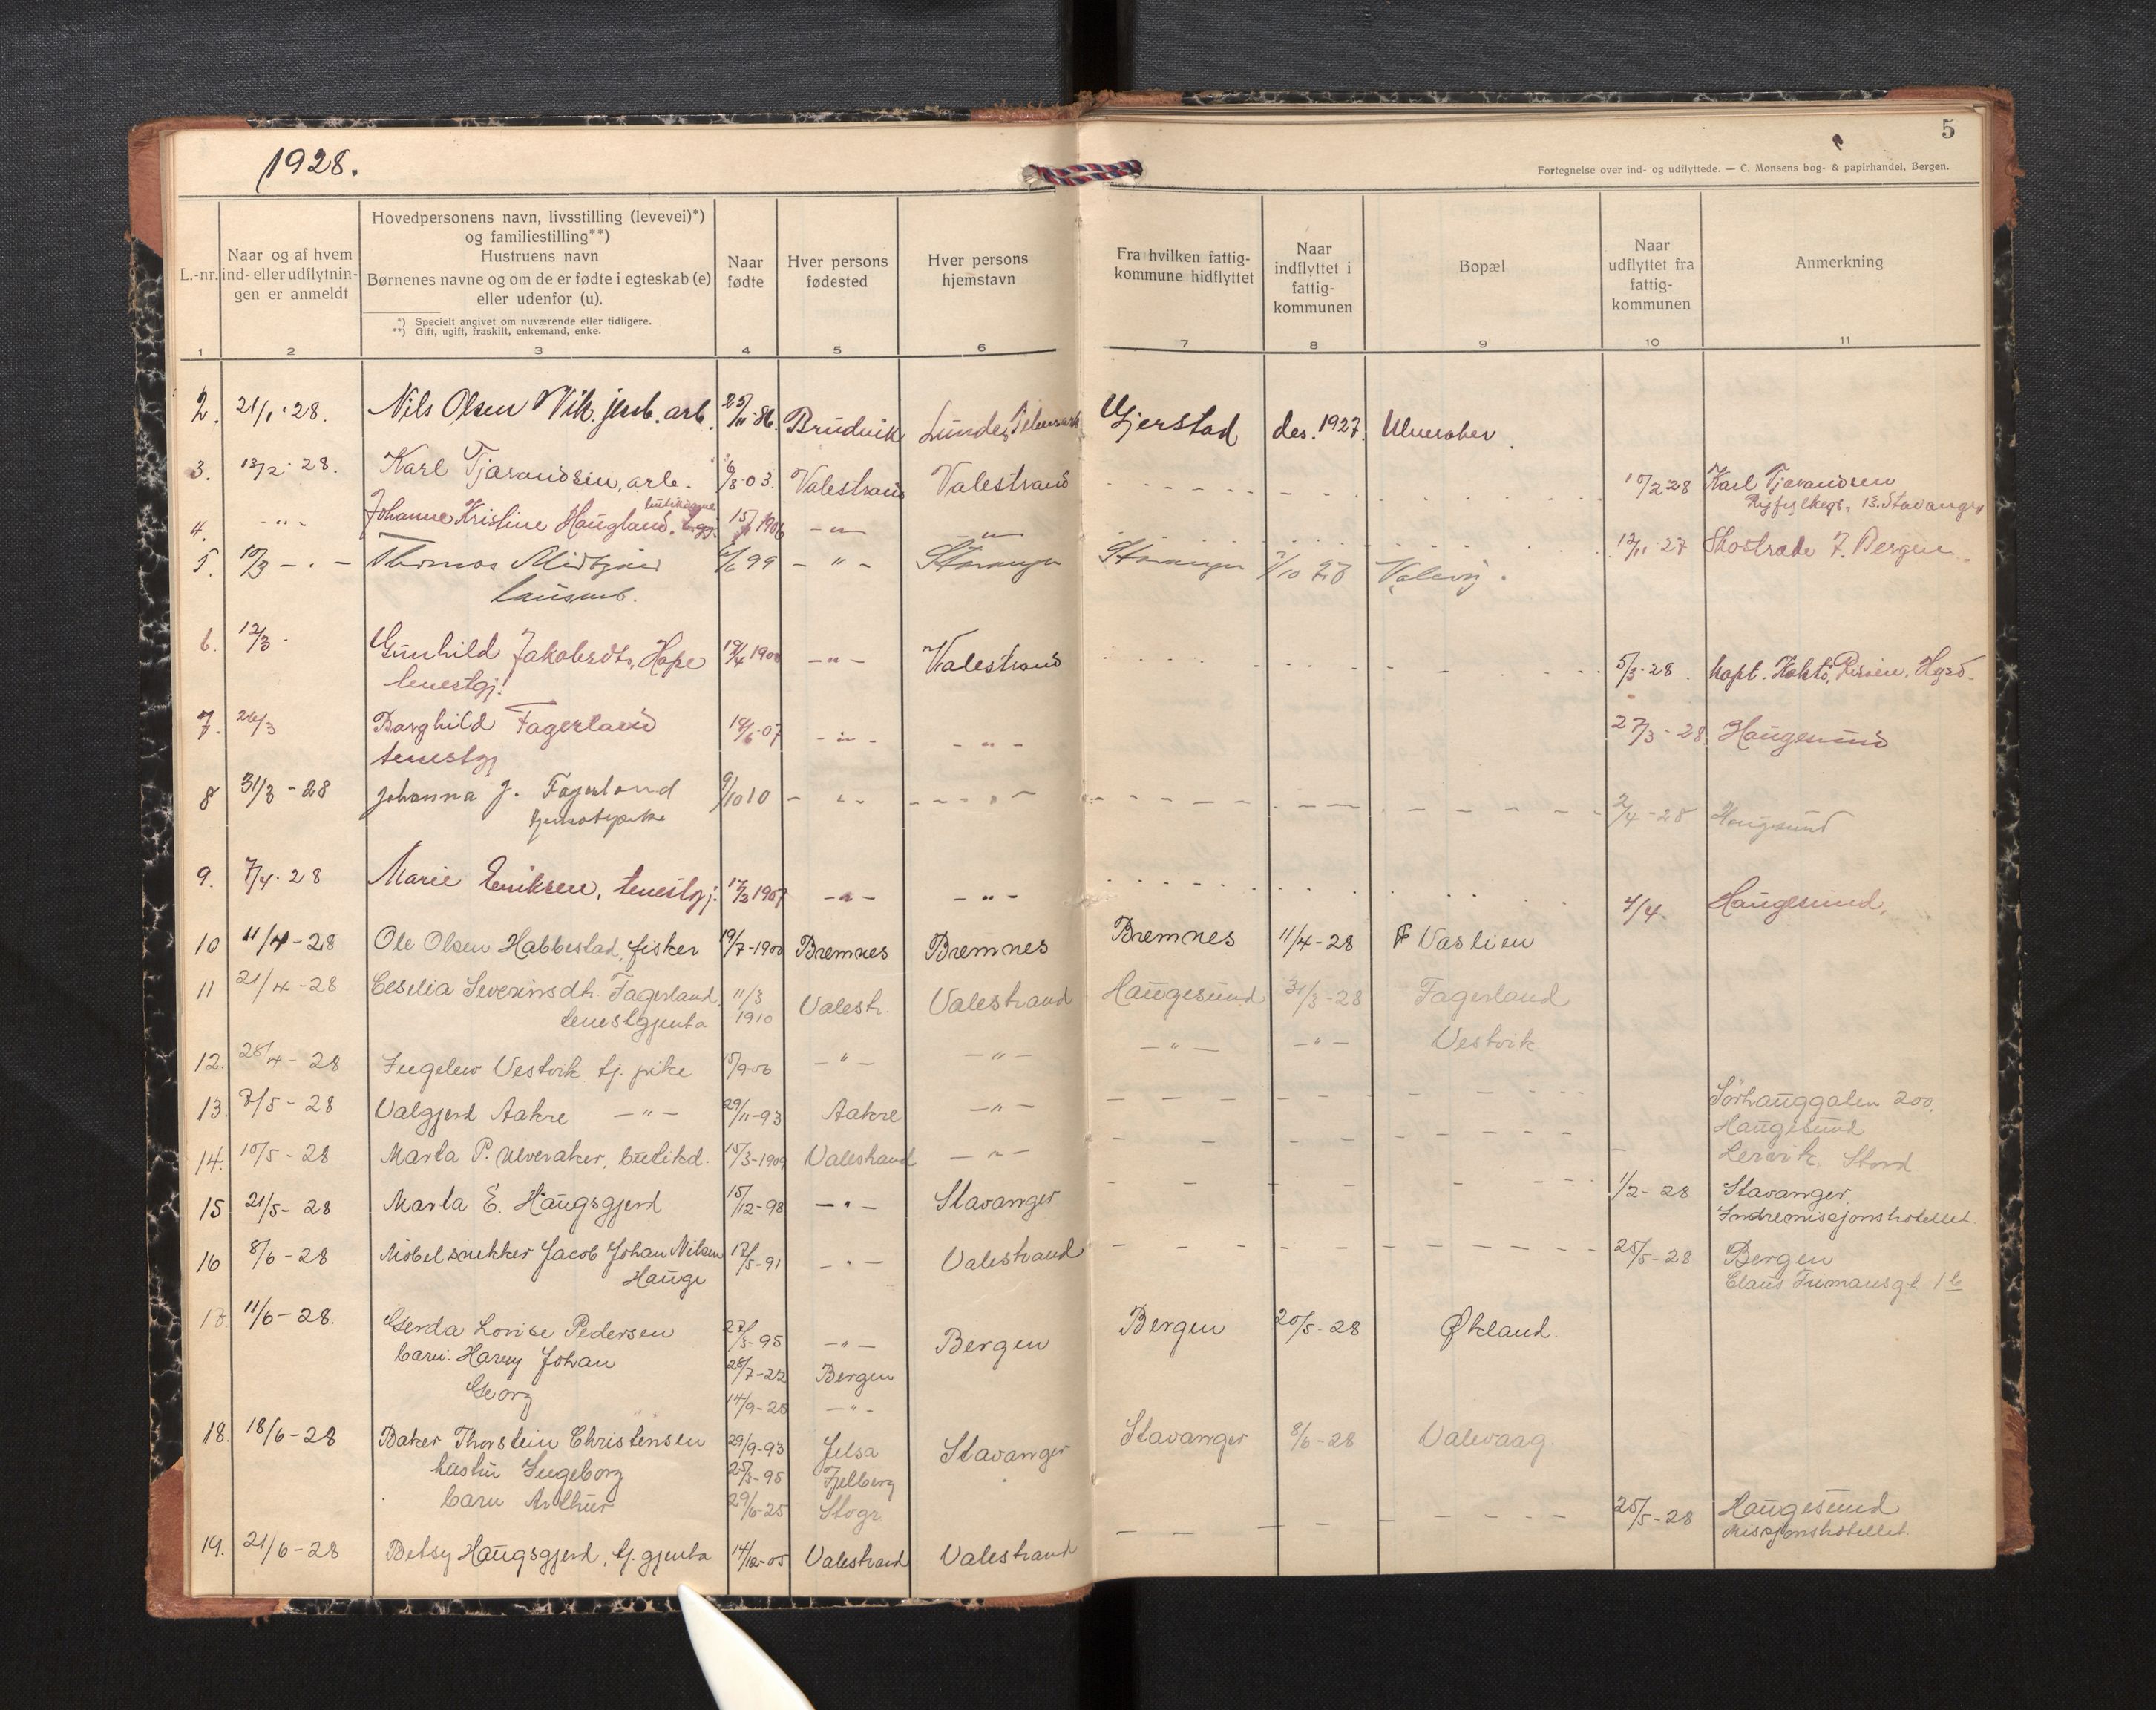 1928.
5
Fortegnelse over ind- og udflyttede. — C. Monsens bog- & papirhandel, Bergen.
L.-nr.
Naar og af hvem ind- eller udflytningen er anmeldt
Hovedpersonens navn, livsstilling (levevei)*)
og familiestilling**)
Hustruens navn
Børnenes navne og om de er fødte i egteskab (e)
eller udenfor (u).
*) Specielt angivet om nuværende eller tidligere.
**) Gift, ugift, fraskilt, enkemand, enke.
Naar fødte
Hver persons fødested
Hver persons hjemstavn
Fra hvilken fattigkommune hidflyttet
Naar indflyttet i fattigkommunen
Bopæl
Naar udflyttet fra fattigkommunen
Anmerkning
1 2 3 4 5 6 7 8 9 10 11
2. 21/1-28. Nils Olsen Vik, jernb. arb. 25/11-86. Brudvik Lunde, Telemark Gjerstad des. 1927. Ulveraker.
3. 13/2-28. Karl Tjarandsen, arb. 6/8-03. Valestrand Valestrand 10/2 28 Karl Tjarandsen
Ryfylkegt. 13. Stavanger
4. -"- Johanne Kristine Haugland. 15/ 1906 -"- -"- 12/11-27 7. Bergen
5. 10/3 - " - Thomas 4/6 99 - " - Stavanger Stavanger /10 Valevåg.
6. 12/3 Gunhild Jakobsdtr. Hope 19/4 1900 -"- Valestrand 5/3-28. kapt. Hgsd.
tenestgj.
7. 26/3 Borghild Fagerland 18/6-07 -"- -"- 27/3-28 Haugesund
tenestgj
8 31/3-28 Johanna J. Fagerland 9/10 10 - " - - " - 2/4-28 Haugesund
tjenestepike
9. 7/4-28 Marie Eriksen, tenestgj. 17/2 1907 -"- -"- 4/4. Haugesund.
10 11/4-28 Ole Olsen Habbestad, fisker 19/7-1900 Bremnes Bremnes Bremnes 11/4-28 Vaslien
11 21/4-28 Ceselia Severinsdtr. Fagerland, 11/3 1910 Valestr. Valestrand Haugesund 31/3-28 Fagerland
tenestgjenta
12. 28/4-28 Ingeleiv Vestvik tj. pike 15/9-06 -"- -"- -"- -"- Vestvik
13. 7/5-28 Valgjerd Aakre -"- 29/11-93 Aakre -"- Sørhauggaten 200,
Haugesund
14. 10/5-28 Marta P. Ulveraker, butikd. 15/3-1909 Valestrand -"- Lervik, Stord
15 21/5-28 Marta E. Haugsgjerd 15/12-98 -"- Stavanger 1/2-28 Stavanger,
Indremisjonshotellet.
16 8/6-28 Møbelsnekker Jacob Johan Nilsen 17/5-91 -"- Valestrand 25/5-28 Bergen
Hauge Claus
17. 11/6-28. Gerda Lovise Pedersen 27/3-95 -"- Bergen Bergen 20/5-28 Økland.
barn: Harry Johan 28/7-22 Bergen
Georg 14/9-25 -"-
18. 18/6-28 Baker Thorstein Christensen 29/9-93 Jelsa Stavanger Stavanger 8/6-28 Valevaag.
hustru Ingeborg 25/3-95 Fjelberg
barn Arthur 29/6-25 Stvgr.
19. 21/6-28 Betsy Haugsgjerd, tj. gjenta 14/12-05 Valestrand Valestrand 25/5-28 Haugesund
Misjonshotellet.